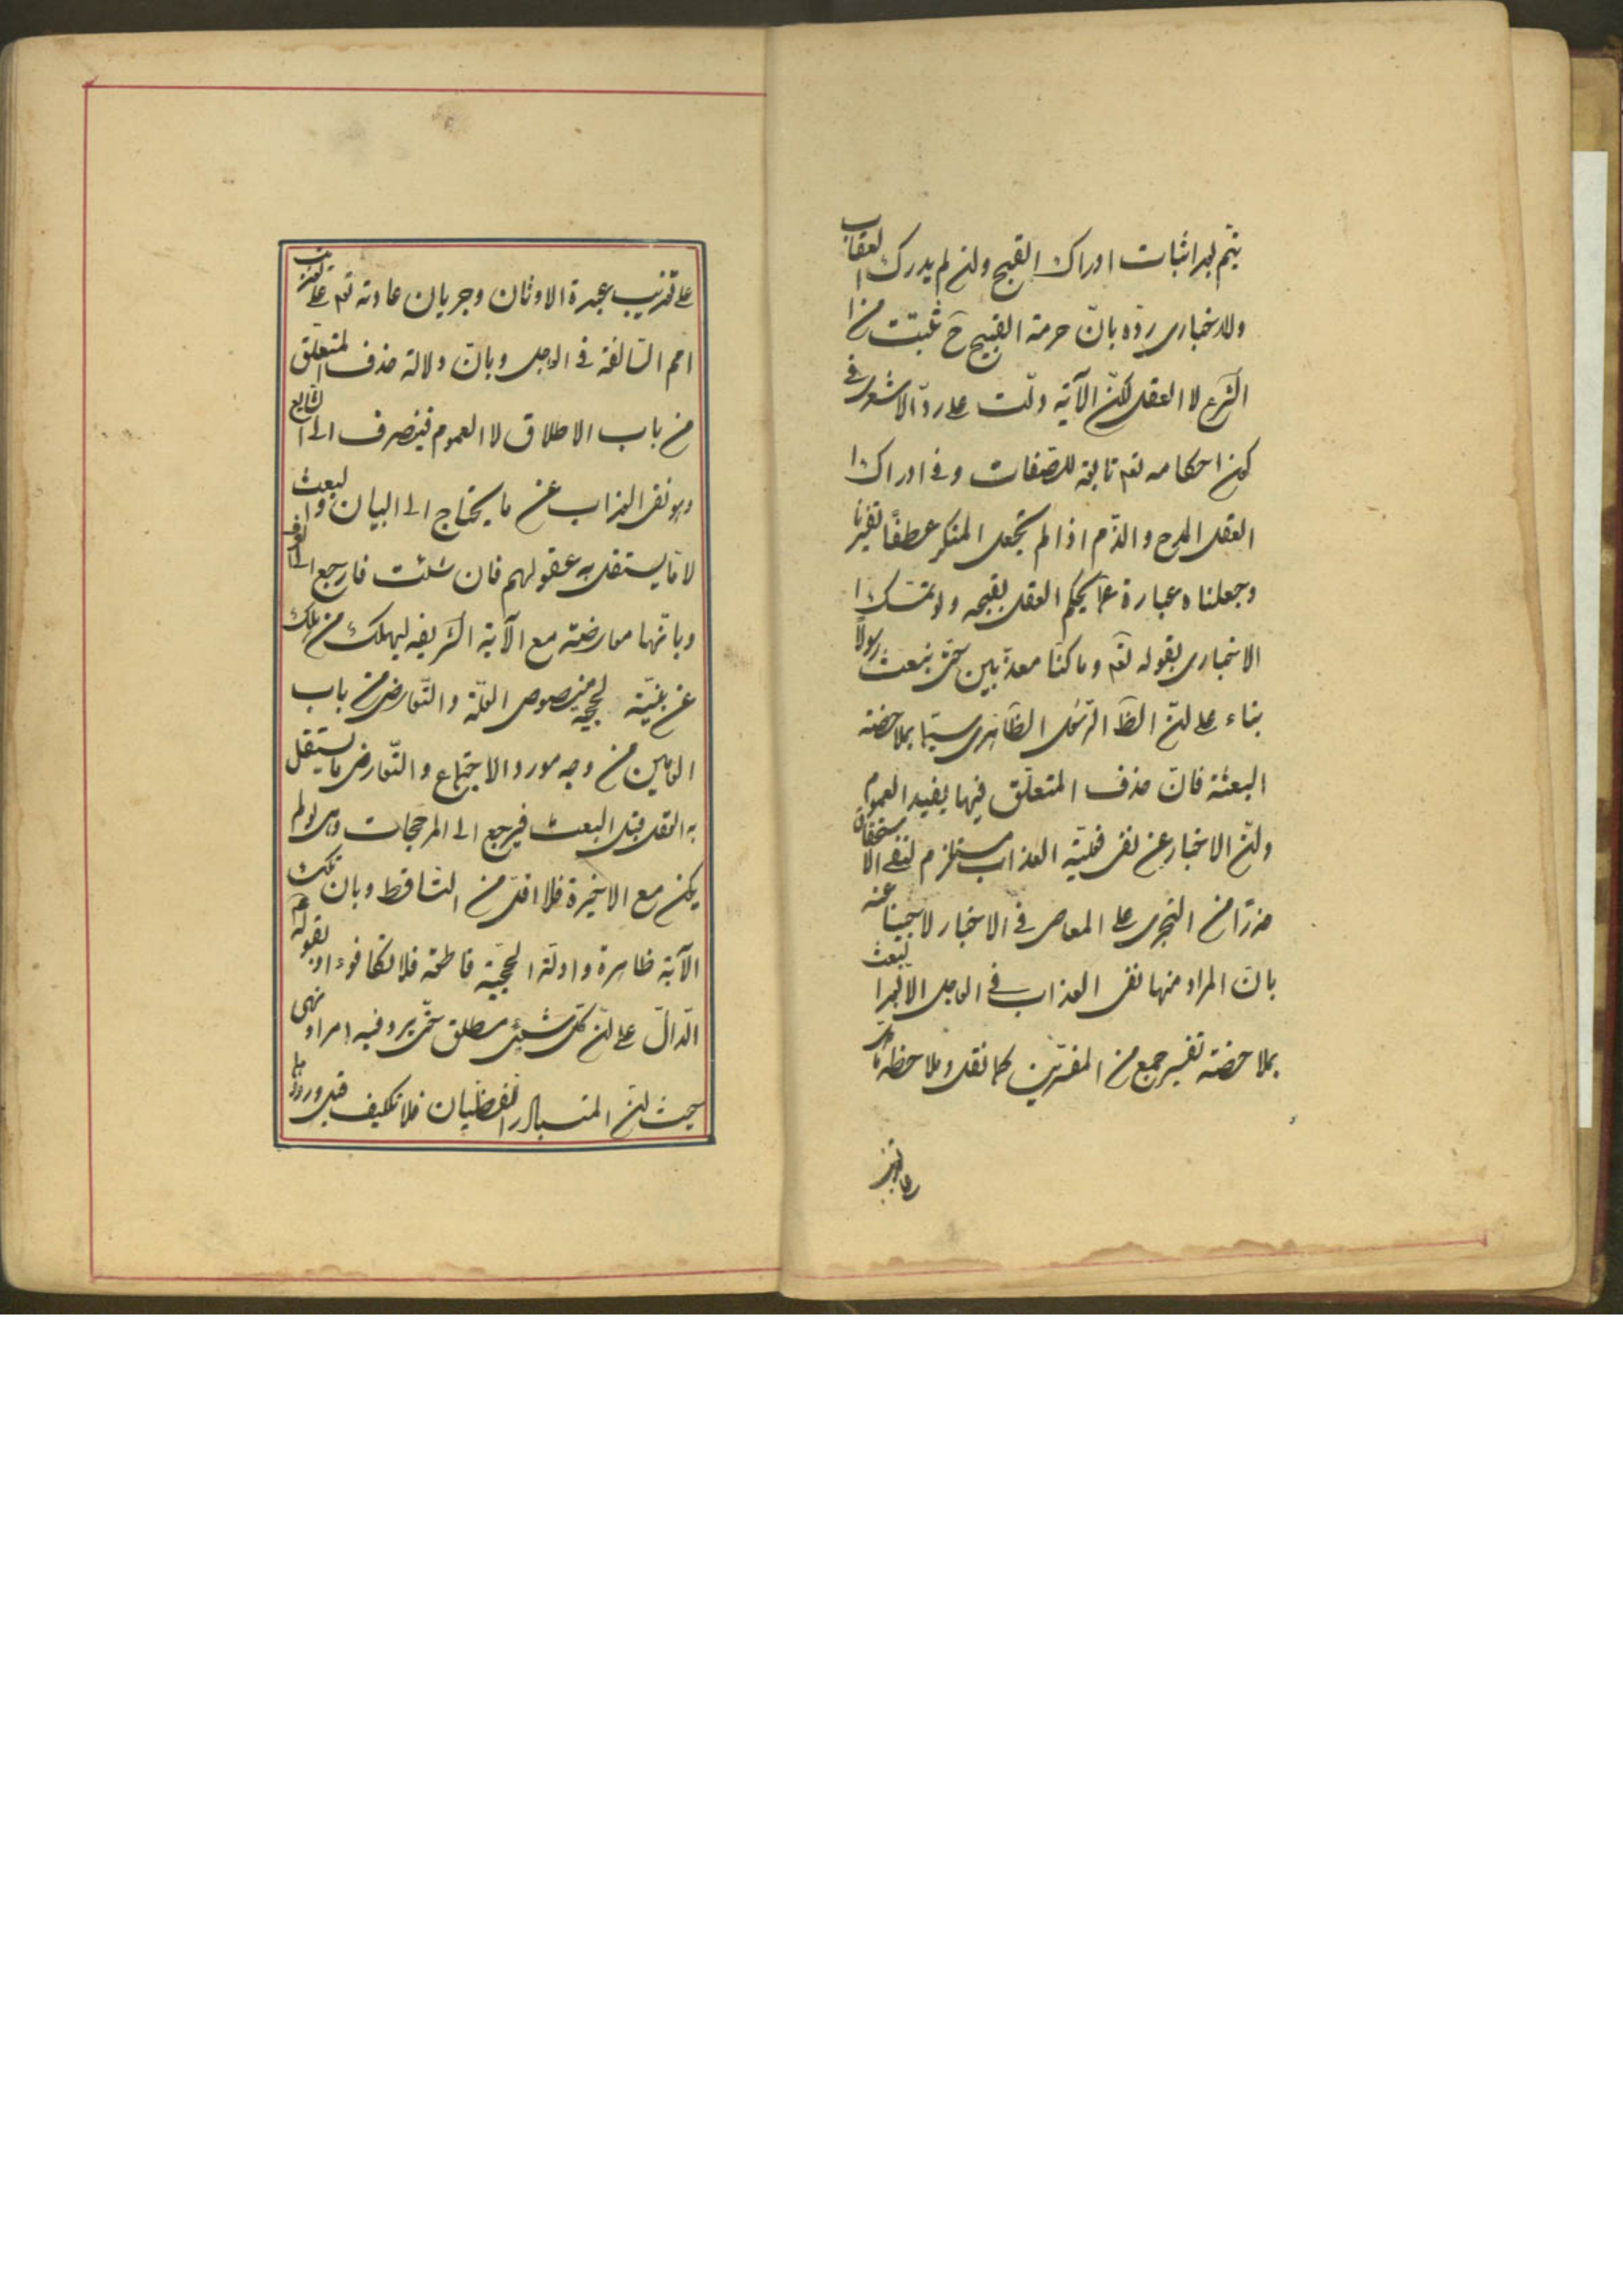 يتم بهد اثبات ادراك القبح ولن لم يدرك العقاب
وللاخبارى ردّه بانّ حرمة القبيح ح ثبتت من
الشرع لا العقل لكنّ الآية دلّت على ردّ الاشعرى فى
كون احكامه تعم تابعة للصفات و فى ادراك
العقل المدح والذّم اذا لم يجعل المنكر عطفًا تفسيريا
وجعلناه عبارة عمّا يحكم العقل بقبحه ولو تمسّك
الاخبارى بقوله تعم وما كنّا معذّبين حتى نبعث رسولًا
بناء على لنّ الظ الرّسول الظّاهرى سيّما بملاحضة
البعثة فانّ حذف المتعلّق فيها يفيد العموم
ولنّ الاخبار عن نفى فعليّة العذاب مستلزم لنفى الاستحقاق
حذرًا من التجرى على المعاصى فى الاخبار لاجبنا عنه
بانّ المراد منها نفى العذاب فى العاجل الا لبعث
بملاحضة تفسير جمع من المفسّرين كما نقل وملاحظة
على تعذيب عبدة الاوثان وجريان عادته تعم على تعذيب
امم السّالفة فى العاجل وبانّ دلالة حذف المتعلّق
من باب الاطلاق لا العموم فينصرف الى الشايع
وهو نفى العذاب عن ما يحتاج الى البيان والبعث
لا ما يستقل به عقولهم فان شئت فارجع الى العرف
وبانّها معارضة مع الآية الشريفه ليهلك من هلك
عن بيّنة لحجية منصوص العلّة والتّعارض من باب
العامين من وجه مورد الاجتماع والتّعارض ما يستقل
به العقل قبل البعث فيرجع الى المرجّحات وهى لو لم
يكن مع الاخيرة فلا اقلّ من التّساقط وبان تلك
الآية ظاهرة وادلّة الحجّية قاطعة فلا تكافوء او بقوله
الدّالّ على لنّ كلّ شيئ مطلق حتى يرد فيه امر او نهى
حيث لنّ المتبادر اللفظيّان فلا تكليف قبل ورودهما